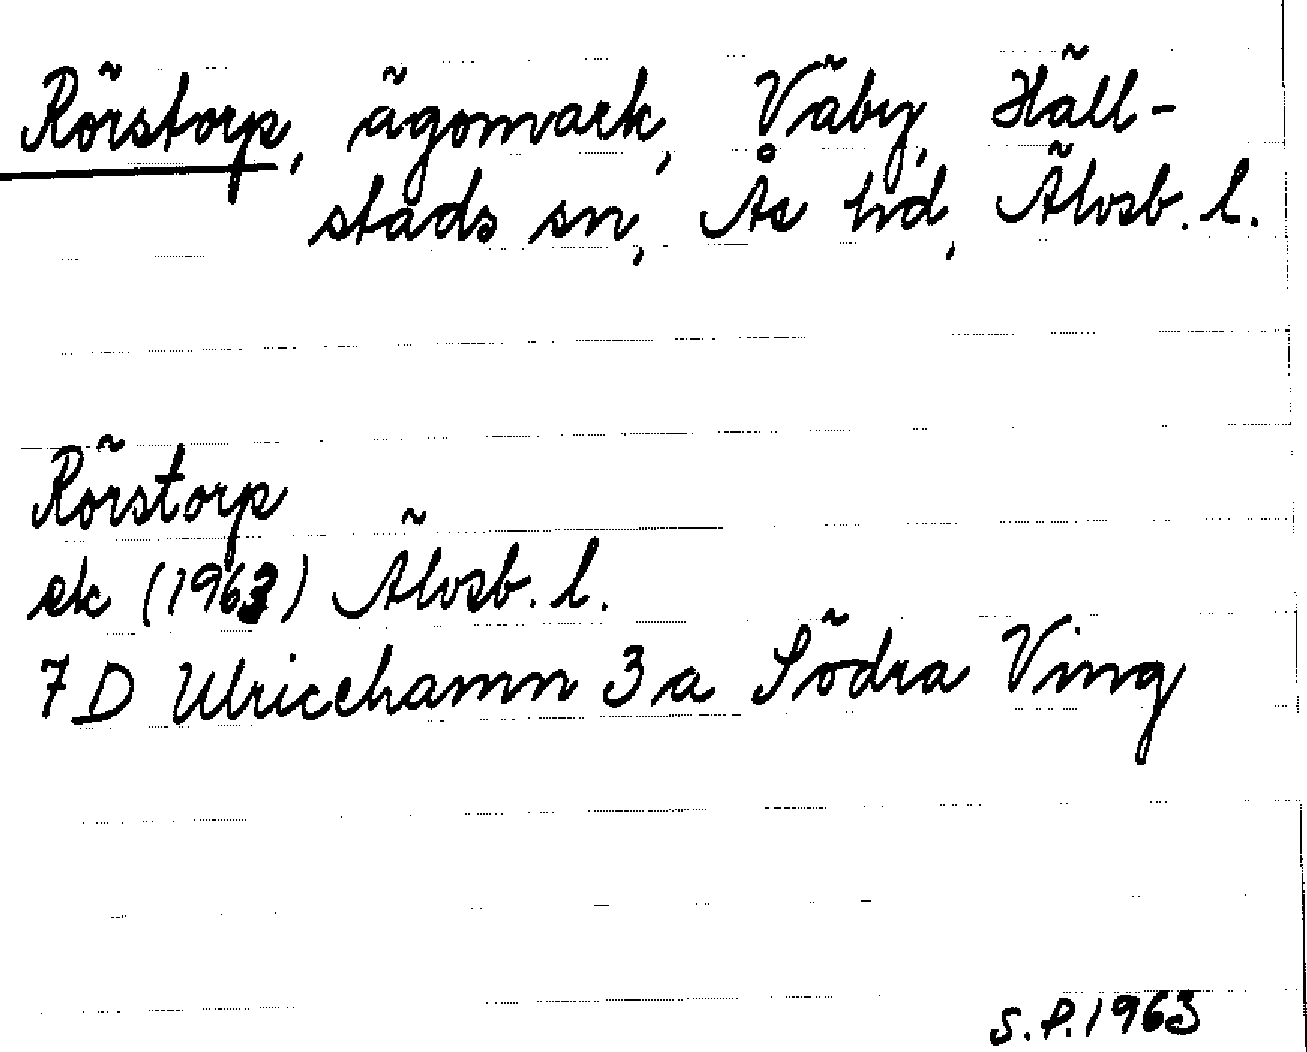 Rörstorp, ägomark, Väby, Häll-
stads sn, Ås hd, Älvsb. l.
Rörstorp
ek (1963) Älvsb. l.
7 D Ulricehamn 3 a Södra Ving
S.P. 1963